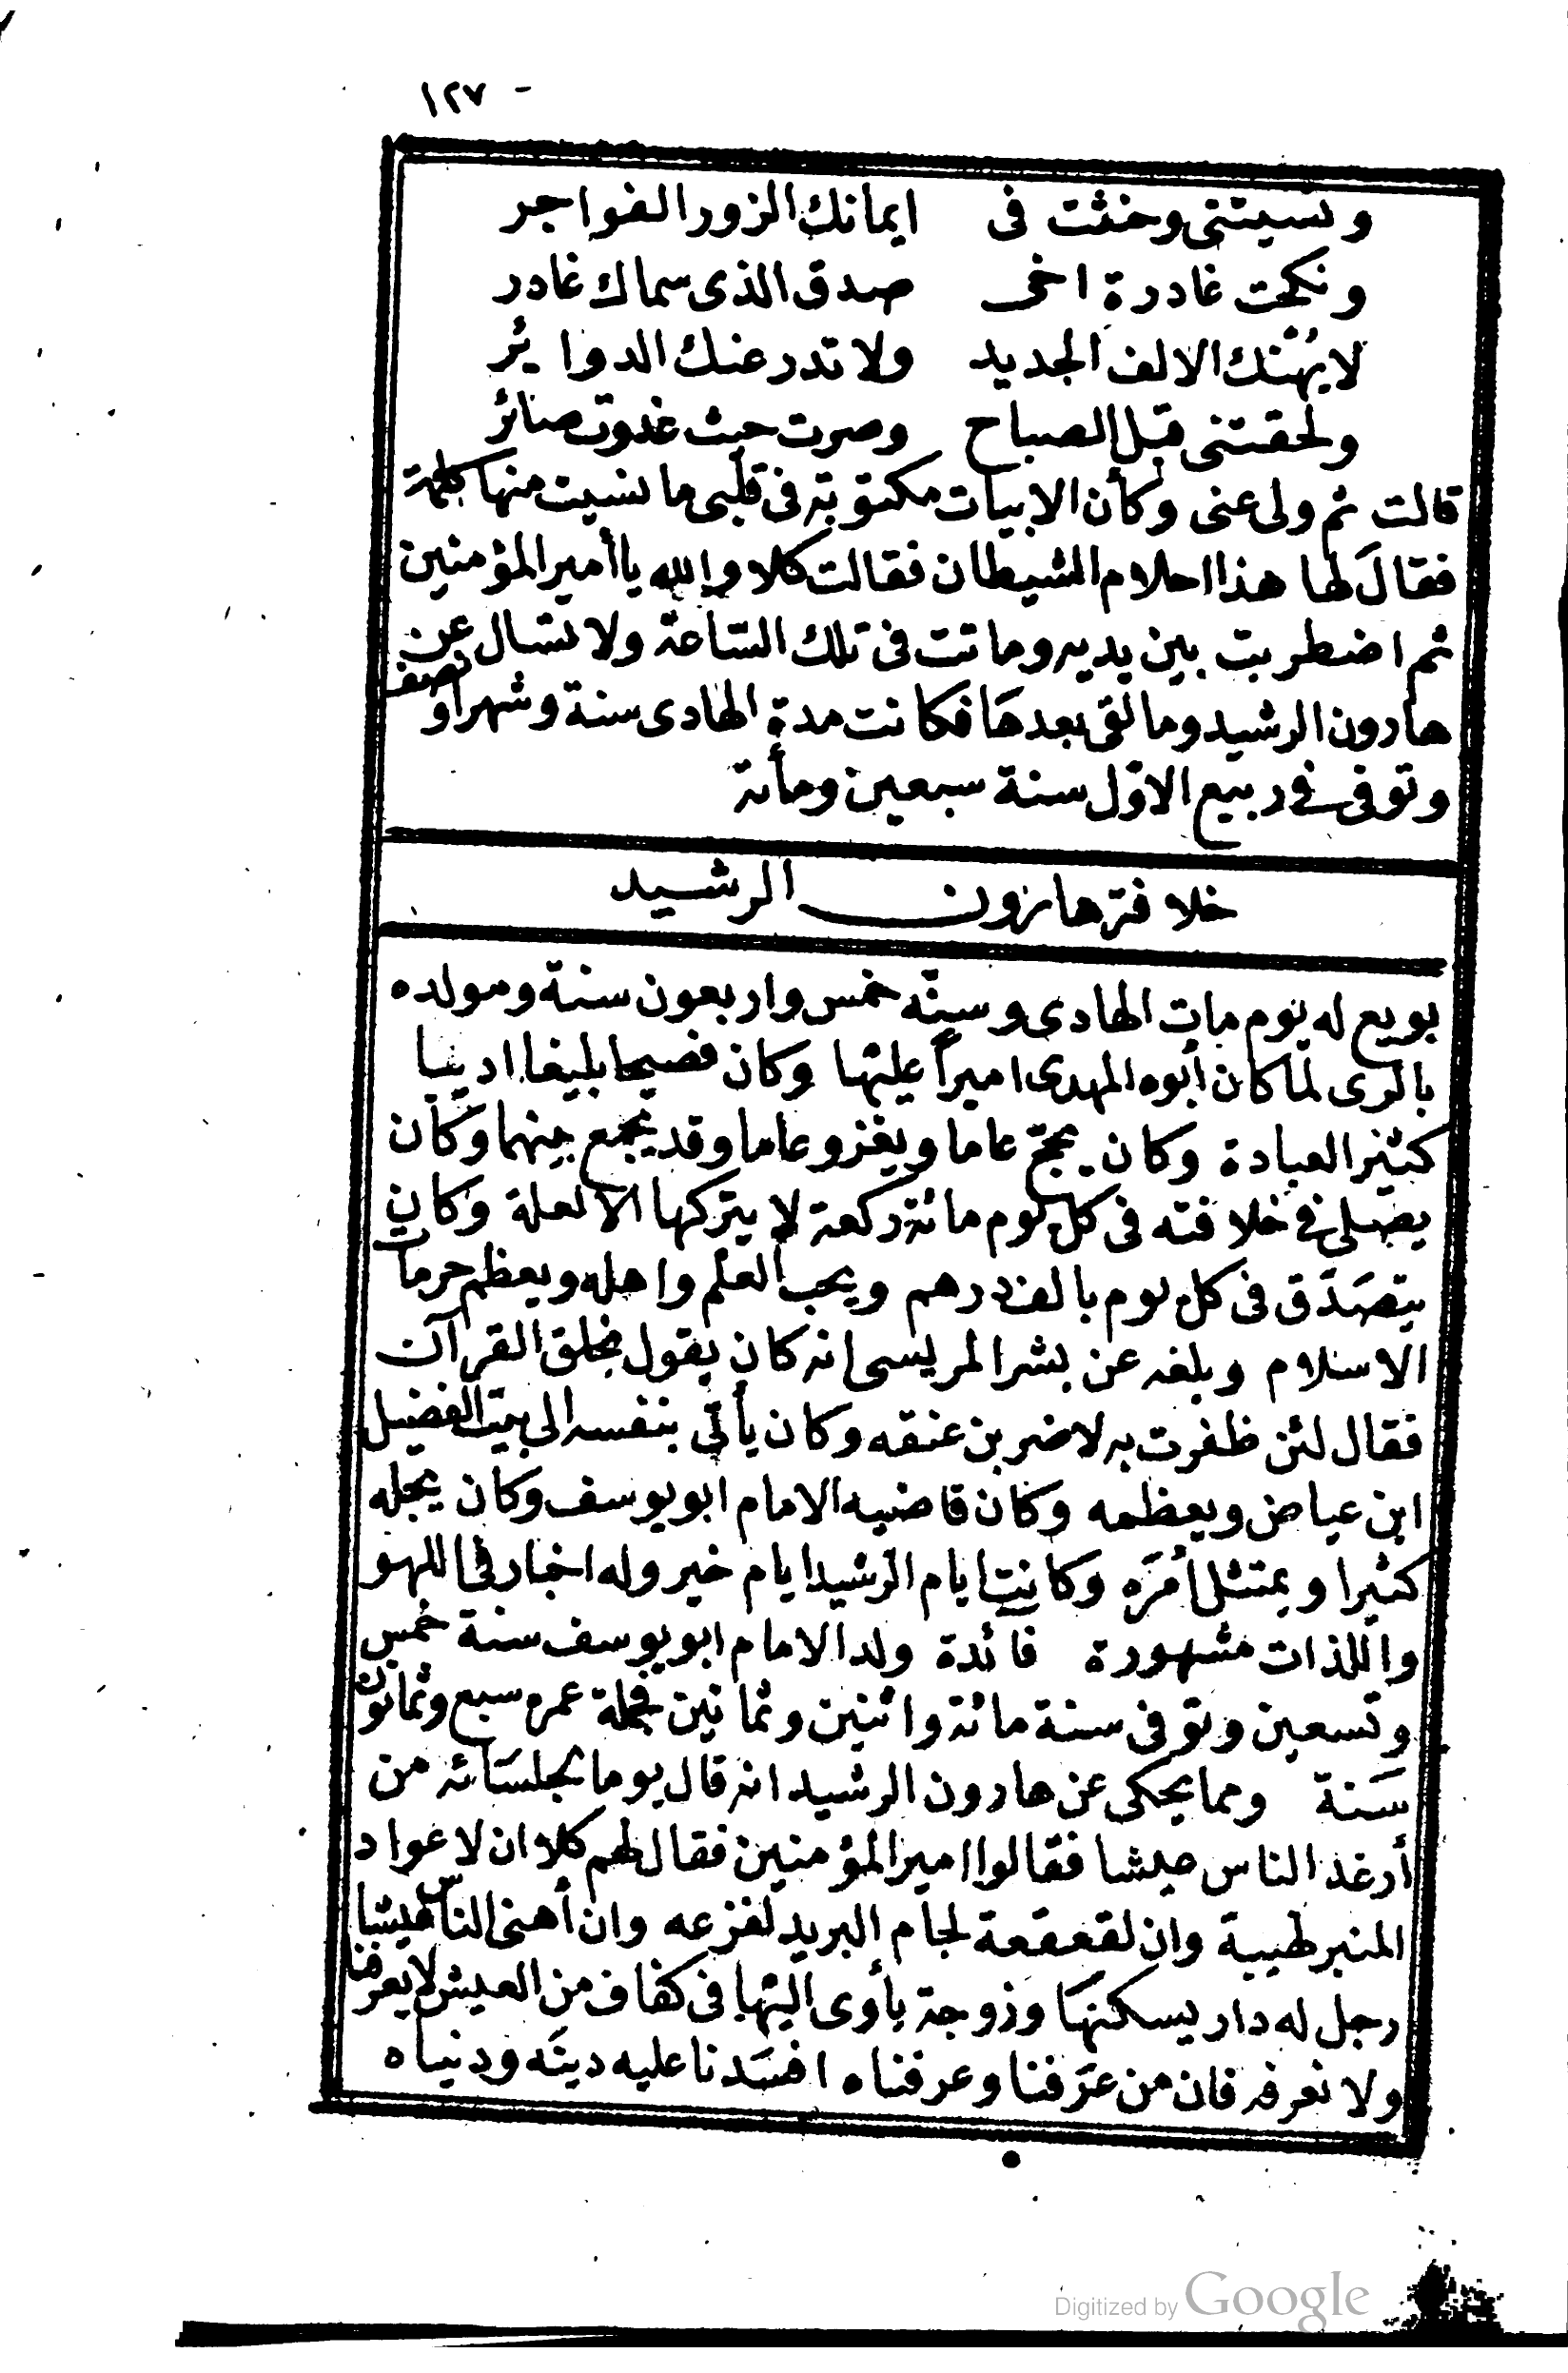 ١٢٧
ونسيتنى وخنثت فى ايمانك الزور الفواجر
ونكحت غادرة اخى صدق الذى سماك غادر
لا يهُنْك الالف الجديد ولا تدر عنك الدوايُر
ولحقتنى قبل الصباح وصرت حيث غدوت صائر
قالت ثم ولى عنى وكأن الابيات مكتوبة فى قلبى ما نسيت منها كلمة
فقالَ لها هذا احلام الشيطان فقالت كلا والله يا أمير المؤمنين
ثم اضطربت بين يديه وماتت فى تلك السّاعة ولا تسال عن
هارون الرشيد وما لقى بعدهَا فكانت مدة الهادى سنة وشهرا ونصف
وتوفى فى ربيع الاوّل سنة سبعين ومأىة
خلافة هارون الرشيد
بويع له يوم مات الهادى وسنّه خمس واربعون سنة ومولده
بالرى لما كان أبوه المهدى اميراً عليها وكان فصيحا بليغا اديبا
كثير العبادة وكان يحج عاما ويغزو عاما وقد يجمع بينهما وكان
يصلى فى خلافته فى كل يوم مائة ركعة لا يتركها الا لعلة وكان
يتصَدّق فى كل يوم بالف درهم ويحب العلم واهله ويعظم حرمات
الاسلام وبلغه عن بشر المريسى انه كان يقول بخلق القرآن
فقال لئن ظفرت به لاضربن عنقه وكان يأتى بنفسه الى بيت الفضيل
ابن عياض ويعظمه وكان قاضيه الامام ابو يوسف وكان يجله
كثيرا ويمتثل أمرَه وكانت ايام الرشيد ايام خير وله اخبار فى اللهو
واللذات مشهورة فائدة ولد الامام ابو يوسف سنة خمس
وتسعين وتوفى سنة مائة واثنين وثمانين فجملة عمره سبع وثمانون
سَنة ومما يحكى عن هارون الرشيد انه قال يوما لجلسَائه من
أرغد الناس عيشا فقالوا امير المؤمنين فقال لهم كلا ان لاعواد
المنبر لهيبة وان لقعقعة لجام البريد لفزعه وان أهنى الناس عيشا
رجل له دار يسكنهَا وزوجة يأوى اليها فى كفاف من العيش لا يعرفنا
ولا نعرفه فان من عرَفنا وعرفناه افسَدنا عليه دينَه ودنياه
Digitized by Google